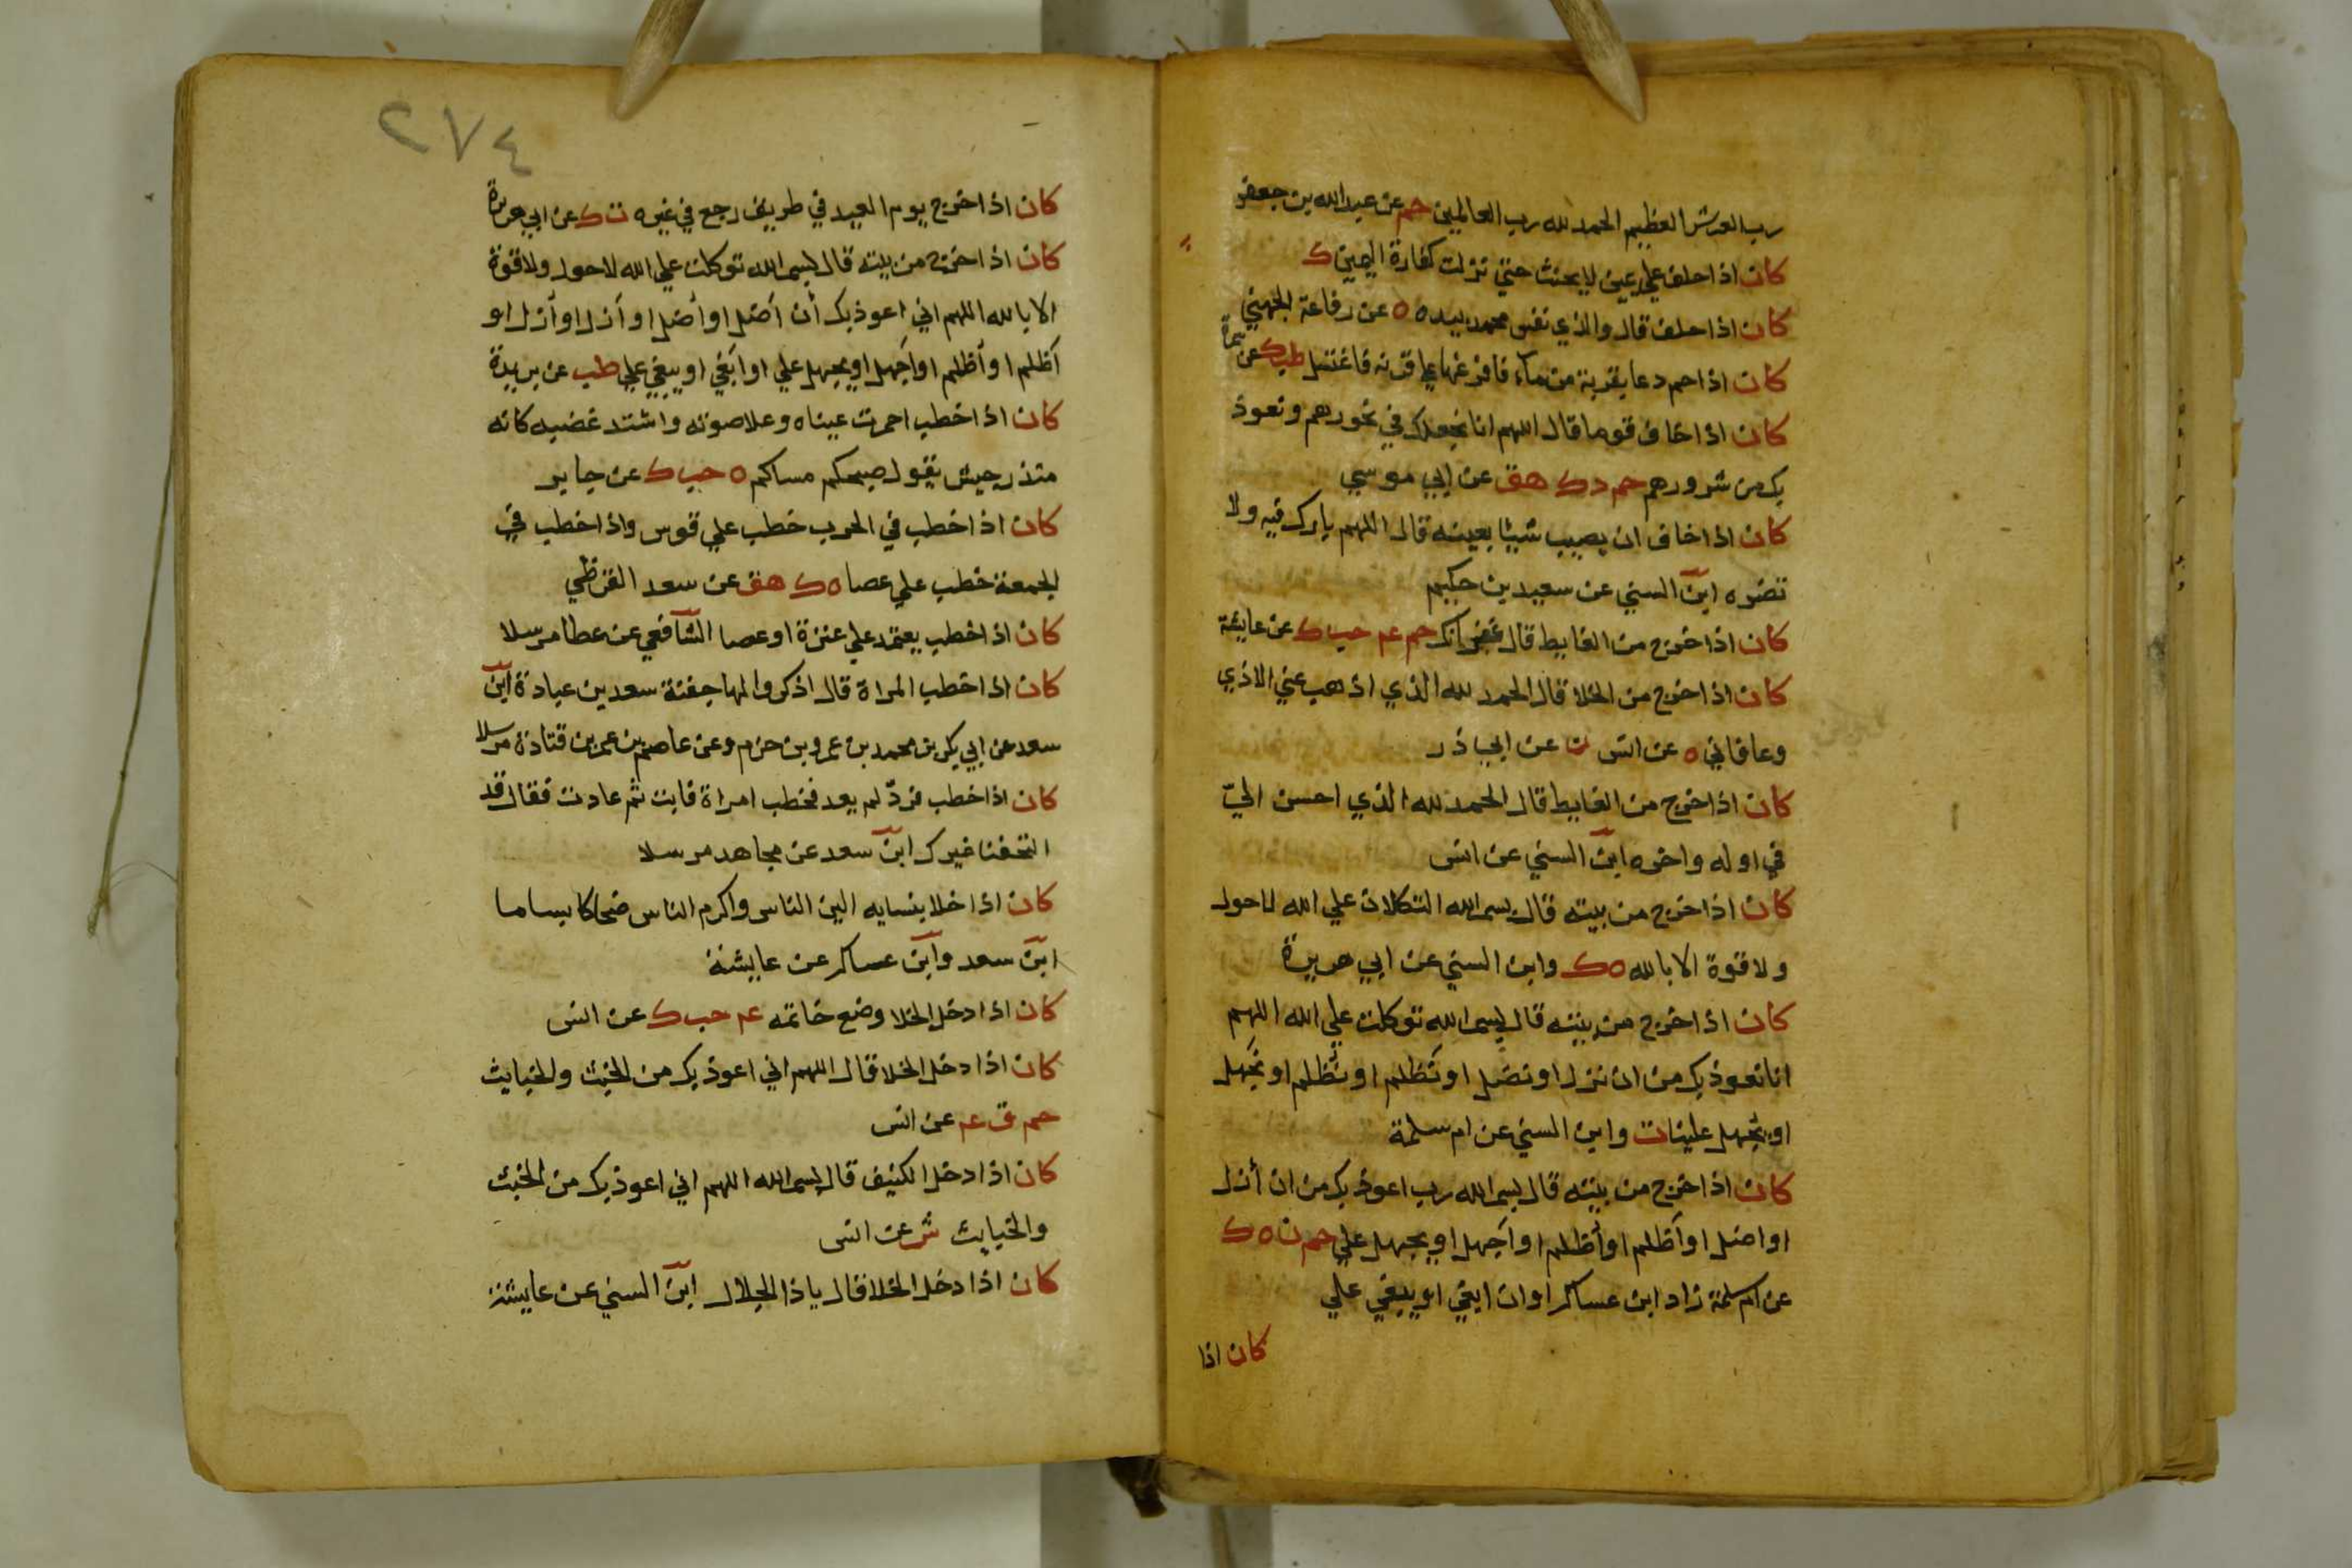 رب العرش العظيم الحمد لله رب العالمين حم عن عبد الله بن جعفر
كان اذا حلف علي يمين لا يحنث حتي نزلت كفارة اليمين ك
كان اذا حلف قال والذي نفس محمد بيده ه عن رفاعة الجهني
كان اذا حم دعا بقربة من ماء فافرغها علي قرنه فاغتسل طب ك عن سمرة
كان اذا خاف قوما قال اللهم انا نجعلك في نحورهم ونعوذ
بك من شرورهم حم د ك هق عن ابي موسي
كان اذا خاف ان يصيب شيئا بعينه قال اللهم بارك فيه ولا
تضره ابن السني عن سعيد بن حكيم
كان اذا خرج من الغايط قال غفرانك حم عم حب ك عن عايشة
كان اذا خرج من الخلا قال الحمد لله الذي اذهب عني الاذي
وعافاني ه عن انس ن عن ابي ذر
كان اذا خرج من الغايط قال الحمد لله الذي احسن اليّ
في اوله واخره ابن السني عن انس
كان اذا خرج من بيته قال بسم الله التكلان علي الله لا حول
ولا قوة الا بالله ه ك وابن السني عن ابي هريرة
كان اذا خرج من بيته قال بسم الله توكلت علي الله اللهم
انا نعوذ بك من ان نزل او نضل او نَظلم او نُظلم او نَجهل
او يُجهل علينا ت وابن السني عن ام سلمة
كان اذا خرج من بيته قال بسم الله رب اعوذ بك من ان أزل
او اضل او أَظلم او أُظلم او أَجهل او يجهل علي حم ن ه ك
عن ام سلمة زاد ابن عساكر او ان ابغي او يبغي علي
كان اذا
٢٧٤
كان اذا خرج يوم العيد في طريق رجع في غيره ت ك عن ابي هريرة
كان اذا خرج من بيته قال بسم الله توكلت علي الله لا حول ولا قوة
الا بالله اللهم اني اعوذ بك أن أضل او أضل او أزل او أزل او
أظلم او أظلم او أجهل او يجهل علي او أبغي او يبغي علي طب عن بريدة
كان اذا خطب احمرت عيناه وعلا صوته واشتد غضبه كانه
منذر جيش يقول صبحكم مساكم ه حب ك عن جابر
كان اذا خطب في الحرب خطب علي قوس واذا خطب في
الجمعة خطب علي عصا ه ك هق عن سعد القرظي
كان اذا خطب يعتمد علي عنزة او عصا الشافعي عن عطا مرسلا
كان اذا خطب المراة قال اذكروا لها جفنة سعد بن عبادة ابن
سعد عن ابي بكر بن محمد بن عمرو بن حزم وعن عاصم بن عمر بن قتادة مرسلا
كان اذا خطب فردّ لم يعد فخطب امراة فابت ثم عادت فقال قد
التحفنا غيرك ابن سعد عن مجاهد مرسلا
كان اذا خلا بنسايه الين الناس واكرم الناس ضحاكا بساما
ابن سعد وابن عساكر عن عايشة
كان اذا دخل الخلا وضع خاتمه عم حب ك عن انس
كان اذا دخل الخلا قال اللهم اني اعوذ بك من الخبث والخبايث
حم ق عم عن انس
كان اذا دخل الكنيف قال بسم الله اللهم اني اعوذ بك من الخبث
والخبايث ش عن انس
كان اذا دخل الخلا قال يا ذا الجلال ابن السني عن عايشة